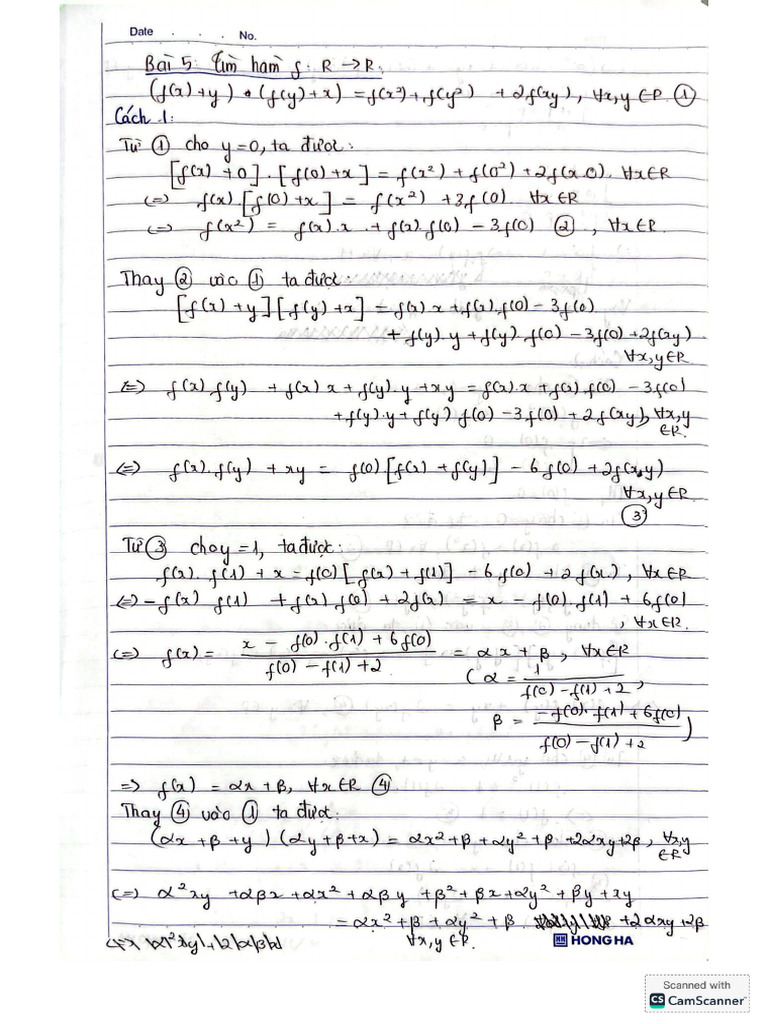 Date . . . No.
Bài 5: Tìm hàm f: R → R:
(f(x) + y) • (f(y) + x) = f(x²) + f(y²) + 2f(xy), ∀x,y ∈ R ①
Cách 1:
Từ ① cho y = 0, ta được:
[f(x) + 0] . [f(0) + x] = f(x²) + f(0²) + 2f(x.0). ∀x∈R
(=) f(x).[f(0) + x] = f(x²) + 3f(0). ∀x∈R
(=) f(x²) = f(x).x + f(x).f(0) − 3f(0) ② , ∀x∈R.
Thay ② vào ① ta được:
[f(x) + y][f(y) + x] = f(x).x + f(x).f(0) − 3f(0)
+ f(y).y + f(y).f(0) − 3f(0) + 2f(xy)
∀x,y∈R.
(=) f(x).f(y) + f(x) x + f(y).y + xy = f(x).x + f(x).f(0) − 3f(0)
+ f(y).y + f(y) f(0) − 3f(0) + 2f(xy), ∀x,y
∈R.
(=) f(x).f(y) + xy = f(0)[f(x) + f(y)] − 6f(0) + 2f(x.y)
∀x,y∈R.
③
Từ ③ cho y = 1, ta được:
f(x).f(1) + x = f(0)[f(x) + f(1)] − 6f(0) + 2f(x), ∀x∈R
(=) − f(x) f(1) + f(x) f(0) + 2f(x) = x − f(0).f(1) + 6f(0)
, ∀x∈R.
(=) f(x) = (x − f(0).f(1) + 6f(0)) / (f(0) − f(1) + 2) = αx + β, ∀x∈R
(α = 1 / (f(0) − f(1) + 2),
β = (−f(0).f(1) + 6f(0)) / (f(0) − f(1) + 2))
=> f(x) = αx + β, ∀x∈R ④
Thay ④ vào ① ta được:
(αx + β + y)(αy + β + x) = αx² + β + αy² + β + 2αxy + 2β, ∀x,y
∈R
(=) α²xy + αβx + αx² + αβy + β² + βx + αy² + βy + xy
= αx² + β + αy² + β + 2αxy + 2β
∀x,y ∈R.
HONG HA
Scanned with
CS CamScanner